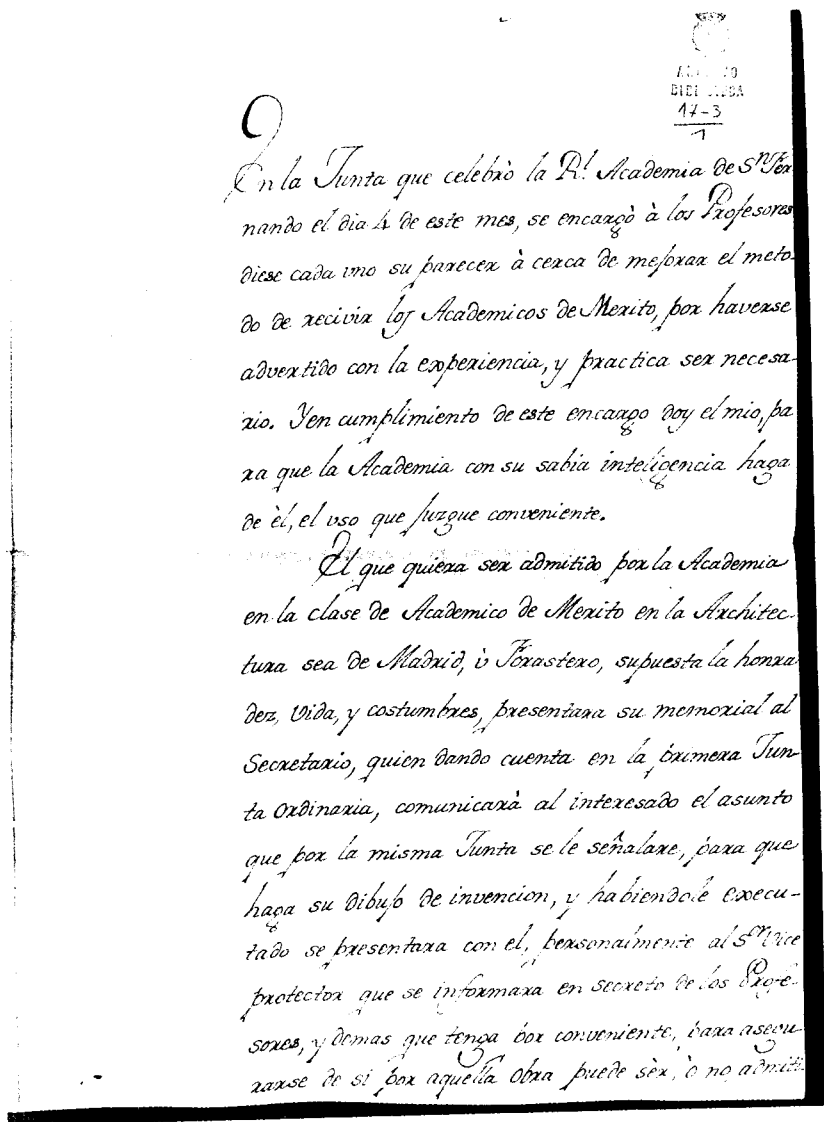 17-3
1
En la Junta que celebrò la Rl. Academia de Sn. Fer
nando el dia 4 de este mes, se encargò à los Profesores
diese cada vno su parecer à cerca de mejorar el meto-
do de recivir los Academicos de Merito, por haverse
advertido con la experiencia, y practica ser necesa-
rio. Y en cumplimiento de este encargo doy el mio, pa
ra que la Academia con su sabia inteligencia haga
de èl, el vso que juzgue conveniente.
El que quiera ser admitido por la Academia
en la clase de Academico de Merito en la Architec-
tura sea de Madrid, ù Forastero, supuesta la honra
dez, vida, y costumbres, presentara su memorial al
Secretario, quien dando cuenta en la primera Jun-
ta Ordinaria, comunicarà al interesado el asunto
que por la misma Junta se le señalare, para que
haga su dibujo de invencion, y habiendole execu-
tado se presentara con el, personalmente al Sn. Vice
protector que se informara en secreto de los Profe-
sores, y demas que tenga por conveniente, para asegu-
rarse de si por aquella obra puede sèr, ò no, admiti-